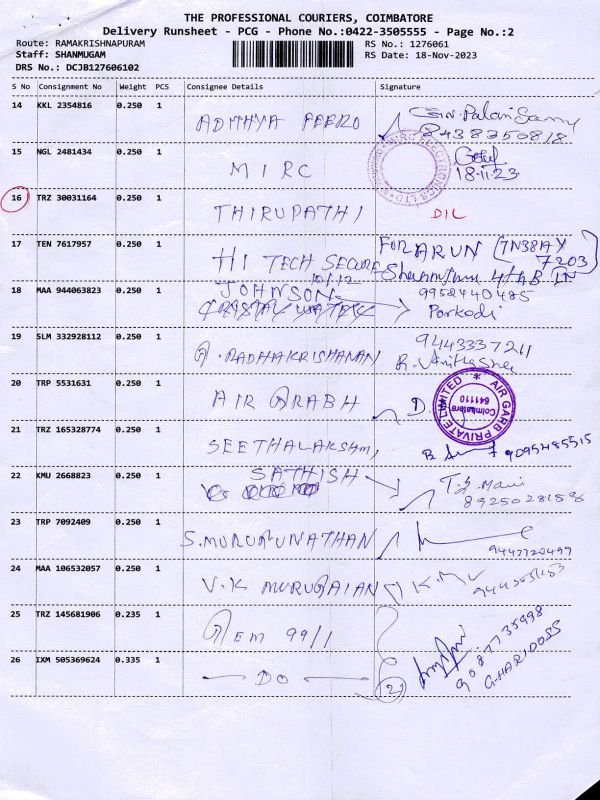 THE PROFESSIONAL COURIERS, COIMBATORE
Delivery Runsheet - PCG - Phone No.:0422-3505555 - Page No.:2
Route: RAMAKRISHNAPURAM
Staff: SHANMUGAM
DRS No.: DCJB127606102
RS No.: 1276061
RS Date: 18-Nov-2023
S No Consignment No Weight PCS Consignee Details Signature
14 KKL 2354816 0.250 1
8438350818
15 NGL 2481434 0.250 1 MIRC
18.11.23
16 TRZ 30031164 0.250 1 THIRUPATHI DIL
17 TEN 7617957 0.250 1 HI TECH SECURE For ARUN (TN38AY
7203)
18 MAA 944063823 0.250 1 JOHNSON
Porkodi
19 SLM 332928112 0.250 1 G.RADHAKRISHANAN 9443337211
20 TRP 5531631 0.250 1 AIR GRABH D.
AIR GARB PRIVATE LIMITED
Coimbatore
641110
21 TRZ 165328774 0.250 1 SEETHALAKSHMI
9095485515
22 KMU 2668823 0.250 1 SATHISH
23 TRP 7092409 0.250 1 S.MURUGUNATHAN
24 MAA 106532057 0.250 1 V.K MURUGAIAN
25 TRZ 145681906 0.235 1 GEM 99/1
9087735998
G.HARIDOSS
26 IXM 505369624 0.335 1 DO